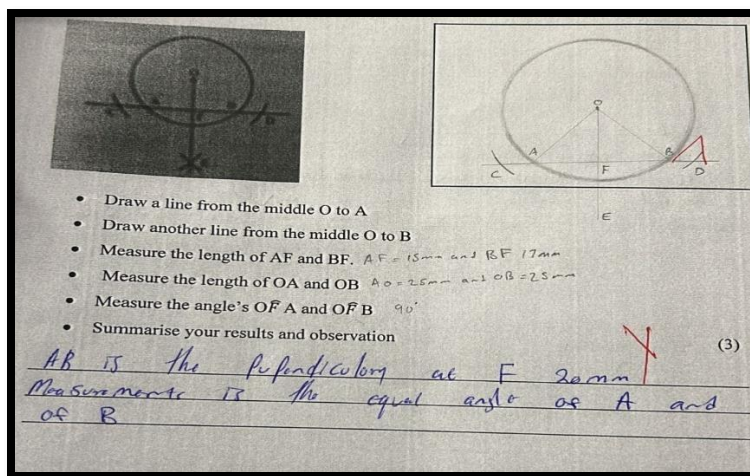 O
A
B
C
F
D
E
• Draw a line from the middle O to A
• Draw another line from the middle O to B
• Measure the length of AF and BF. AF = 15mm and BF 17mm
• Measure the length of OA and OB AO = 25mm and OB = 25mm
• Measure the angle's OF̂A and OF̂B 90°
• Summarise your results and observation
(3)
AB is the Pupendiculory at F 20mm
Measurments is the equal anglo of A and
of B